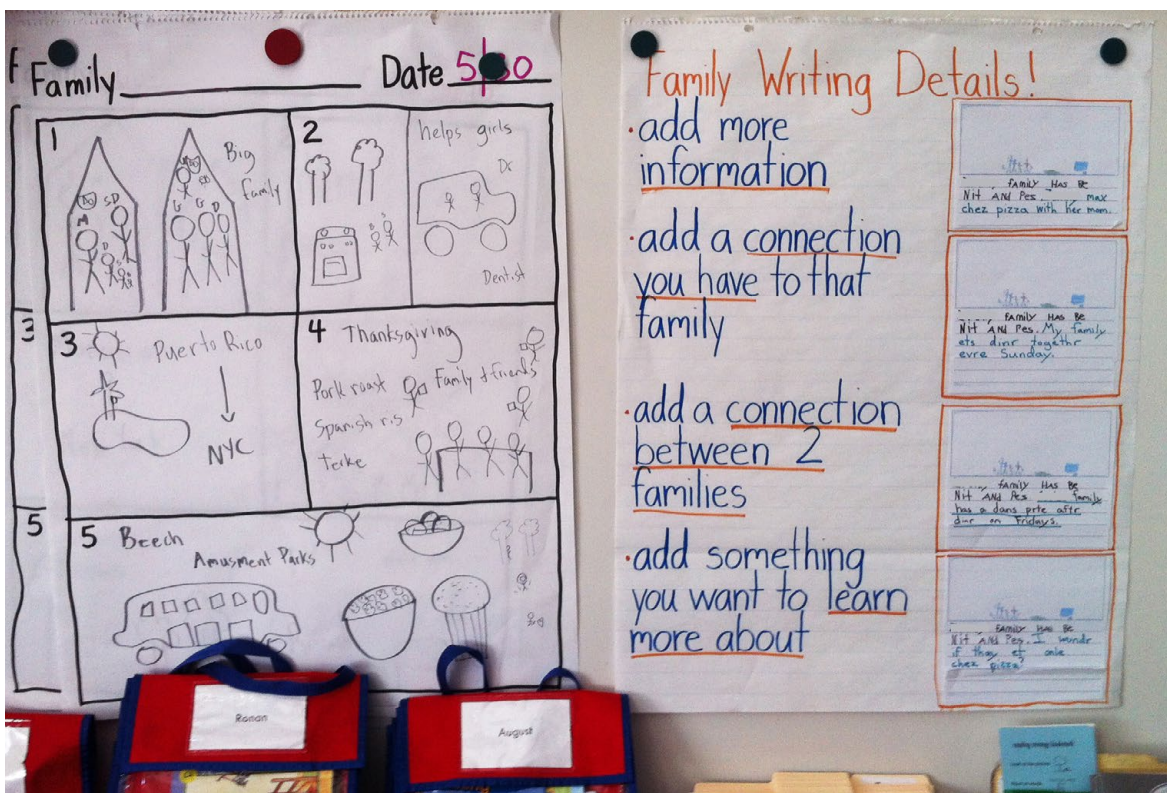 Family
Date 5/30
1
Big
family
2
helps girls
Dr
Dentist
3
3
Puerto Rico
NYC
4 Thanksgiving
Pork roast
Family + friends
Spanish ris
Terke
5
5 Beech
Amusment Parks
Ronan
August
Family Writing Details!
·add more
information
·add a connection
you have to that
family
·add a connection
between 2
families
·add something
you want to learn
more about
FAMILY HAS Be
Nit AND Pes. max
chez pizza with her mom.
FAMILY HAS Be
Nit AND Pes. My family
ets dinr togethr
evre Sunday.
FAMILY HAS Be
Nit AND Pes family
has a dans prte aftr
dinr on Fridays.
FAMILY HAS Be
Nit AND Pes. I wundr
if thay et onle
chez pizza?